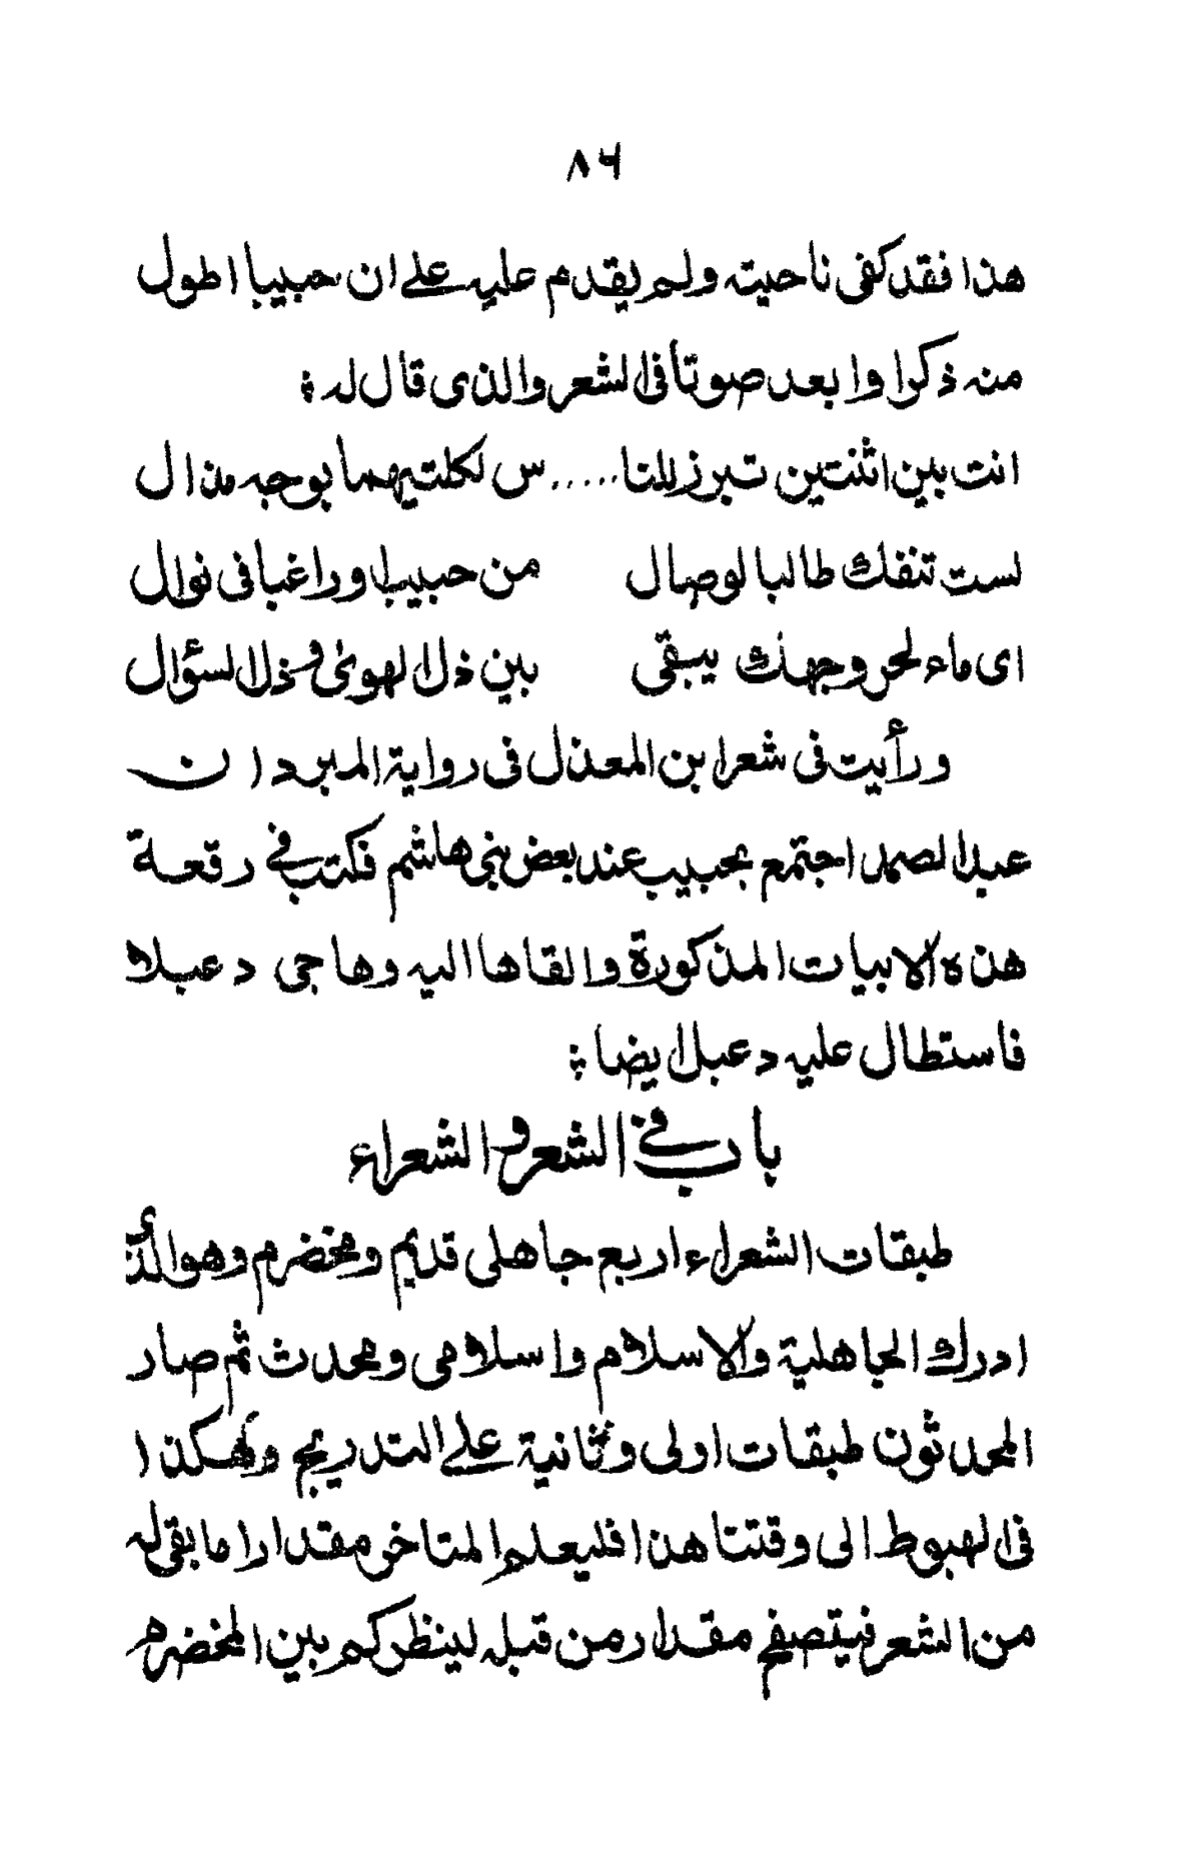 ۸۶
هذا فقد كفى ناحيته ولم يقدم عليه على ان حبيبا اطول
منه ذكرا وابعد صوتا فى الشعر والذى قال له ؛
انت بين اثنتين تبرز للنا.....س لكلتيهما بوجه مذال
لست تنفك طالبا لوصال من حبيب او راغبا فى نوال
اى ماء لحر وجهك يبقى بين ذل الهوىٰ وذل السؤال
ورأيت فى شعر ابن المعذل فى رواية المبرد ان
عبد الصمد اجتمع بحبيب عند بعض بنى هاشم فكتب في رقعة
هذه الابيات المذكورة والقاها اليه وهاجى دعبلا
فاستطال عليه دعبل ايضا ؛
باب في الشعر والشعراء
طبقات الشعراء اربع جاهلى قديم ومخضرم وهو الذى
ادرك الجاهلية والاسلام واسلامى ومحدث ثم صار
المحدثون طبقات اولى وثانية على التدريج وهكذا
فى الهبوط الى وقتنا هذا فليعلم المتاخر مقدار ما بقى له
من الشعر فيتصفح مقدار من قبله لينظر كم بين المخضرم